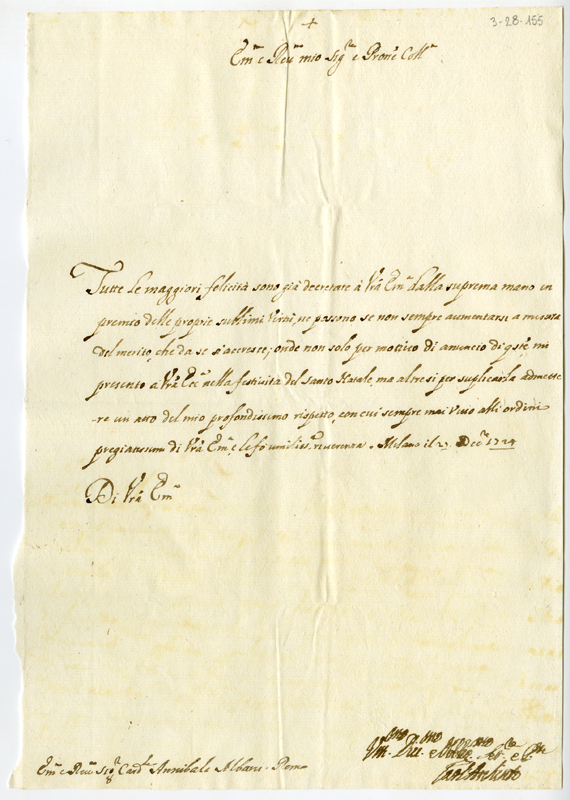 3-28-155
+
Em.ͫ e Reu.ͫ mio Sig.ʳᵉ e Pron̄e Coll.ᵐ
Tutte le maggiori felicità sono già decretate à Vrā Em.ᵃ dalla suprema mano in
premio delle proprie sublimi Virtù, ne possono se non sempre aumentarsi a misura
del merito, che da se s'accresce; onde non solo per motivo di anuncio di q̄ste mi
presento a Vrā Ecc.ᵃ nella festività del Santo Natale, ma altresi per suplicarla admette
-re un atto del mio profondissimo rispetto, con cui sempre mai viuo alli ordini
pregiatissimi di Vrā Em.ᵃ, e le fò umiliss.ᵃ riuerenza. Milano il 27 Dec.ᵉ 1724
Di Vrā Em.ᵃ
Em.ͫ e Reu.ͫ Sig.ʳ Card.ˡ Annibale Albani - Roma